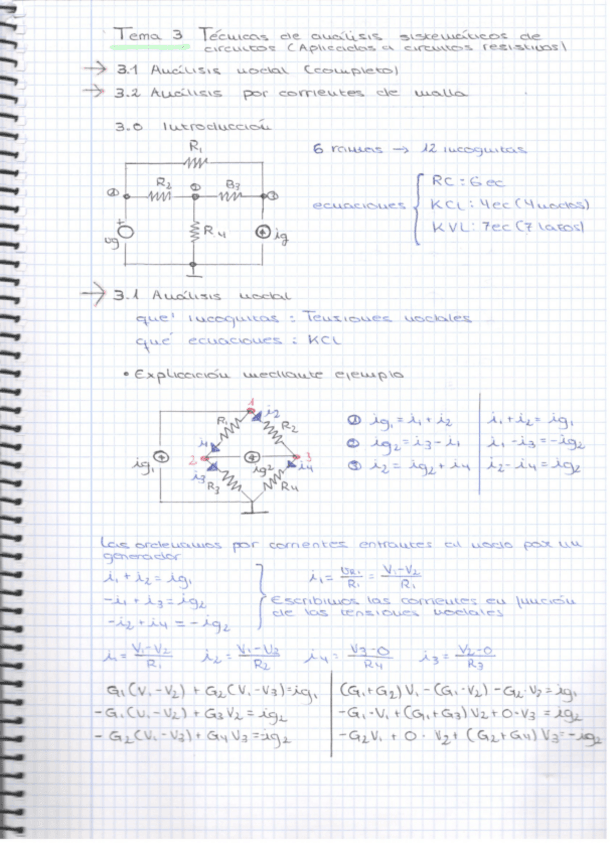 Tema 3 Técnicas de análisis sistemáticos de
circuitos (Aplicados a circuitos resistivos)
→ 3.1 Análisis nodal (completo)
→ 3.2 Análisis por corrientes de malla
3.0 Introducción
R1
R2
R3
R4
ug
ig
6 ramas → 12 incognitas
ecuaciones
RC: 6 ec
KCL: 4ec (4 nodos)
KVL: 7ec (7 lazos)
→ 3.1 Análisis nodal
qué incognitas : Tensiones nodales
qué ecuaciones : KCL
• Explicación mediante ejemplo
1
R1
i2
i1
R2
ig1
2
ig2
3
i3
i4
R3
R4
① ig1 = i1 + i2 | i1 + i2 = ig1
② ig2 = i3 - i1 | i1 - i3 = -ig2
③ i2 = ig2 + i4 | i2 - i4 = ig2
Las ordenamos por corrientes entrantes al nodo por un
generador
i1 + i2 = ig1
-i1 + i3 = ig2
-i2 + i4 = -ig2
i1 = UR1/R1 = V1-V2/R1
Escribimos las corrientes en función
de las tensiones nodales
i1 = V1-V2/R1 i2 = V1-V3/R2 i4 = V3-0/R4 i3 = V2-0/R3
G1(V1-V2) + G2(V1-V3) = ig1 | (G1+G2)V1 - (G1·V2) - G2·V3 = ig1
-G1(V1-V2) + G3V2 = ig2 | -G1·V1 + (G1+G3)V2 + 0·V3 = ig2
-G2(V1-V3) + G4V3 = ig2 | -G2V1 + 0·V2 + (G2+G4)V3 = -ig2